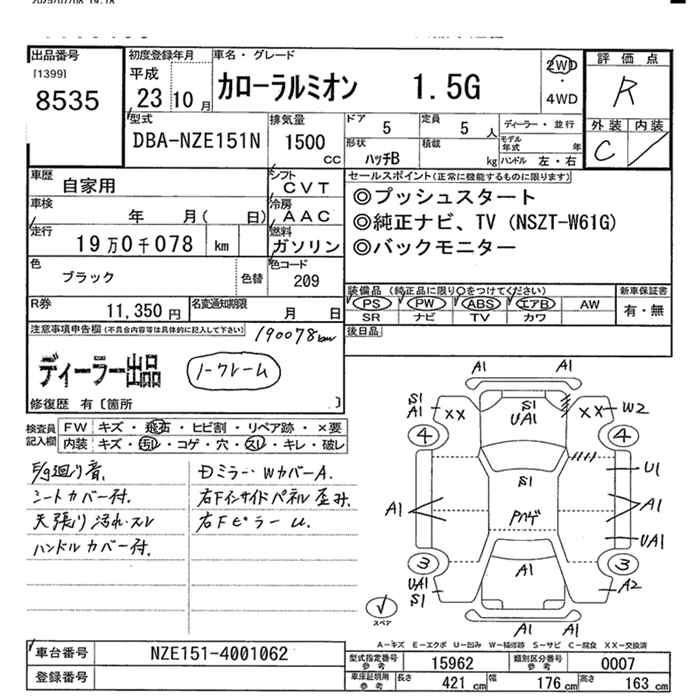 出品番号
[1399]
8535
初度登録年月
平成
23 10 月
車名・グレード
カローラルミオン 1.5G
2WD
・
4WD
評価点
R
外装 内装
C
型式
DBA-NZE151N
排気量
1500
CC
ドア 5
定員 5 人
ディーラー・並行
形状 ハッチB
積載 kg
モデル年式 年
ハンドル 左・右
車歴
自家用
シフト
CVT
車検
年 月( 日)
冷房
AAC
走行
19万0千078 km
燃料
ガソリン
色
ブラック
色替
色コード
209
R券
11,350 円
名変通知期限
月 日
セールスポイント(正常に機能するものに限ります)
◎プッシュスタート
◎純正ナビ、TV (NSZT-W61G)
◎バックモニター
装備品 (純正品に限り○をつけてください)
PS PW ABS エアB AW
SR ナビ TV カワ
新車保証書
有・無
後日品
注意事項申告欄(不具合内容等は具体的に記入して下さい)
190078km
ディーラー出品
ノークレーム
修復歴 有〔箇所 〕
検査員
記入欄
FW キズ・飛石・ヒビ割・リペア跡・×要
内装 キズ・汚れ・コゲ・穴・スレ・キレ・破レ
E/g廻り音.
シートカバー付.
天張り汚れ・スレ
ハンドルカバー付.
Dミラー・WカバーA.
右Fインサイドパネル歪み.
右FピラーU.
A1
A1
S1
A1
XX
S1
UA1
XX
W2
4
4
S1
U1
A1
Pハゲ
A1
UA1
3
3
UA1
S1
A1
A2
スペア
A1
A1
A-キズ E-エクボ U-凹み W-補修跡 S-サビ C-腐食 XX-交換済
車台番号
NZE151-4001062
登録番号
型式指定番号
参考
15962
類別区分番号
参考
0007
車庫証明用
参考
長さ 421 cm
幅 176 cm
高さ 163 cm